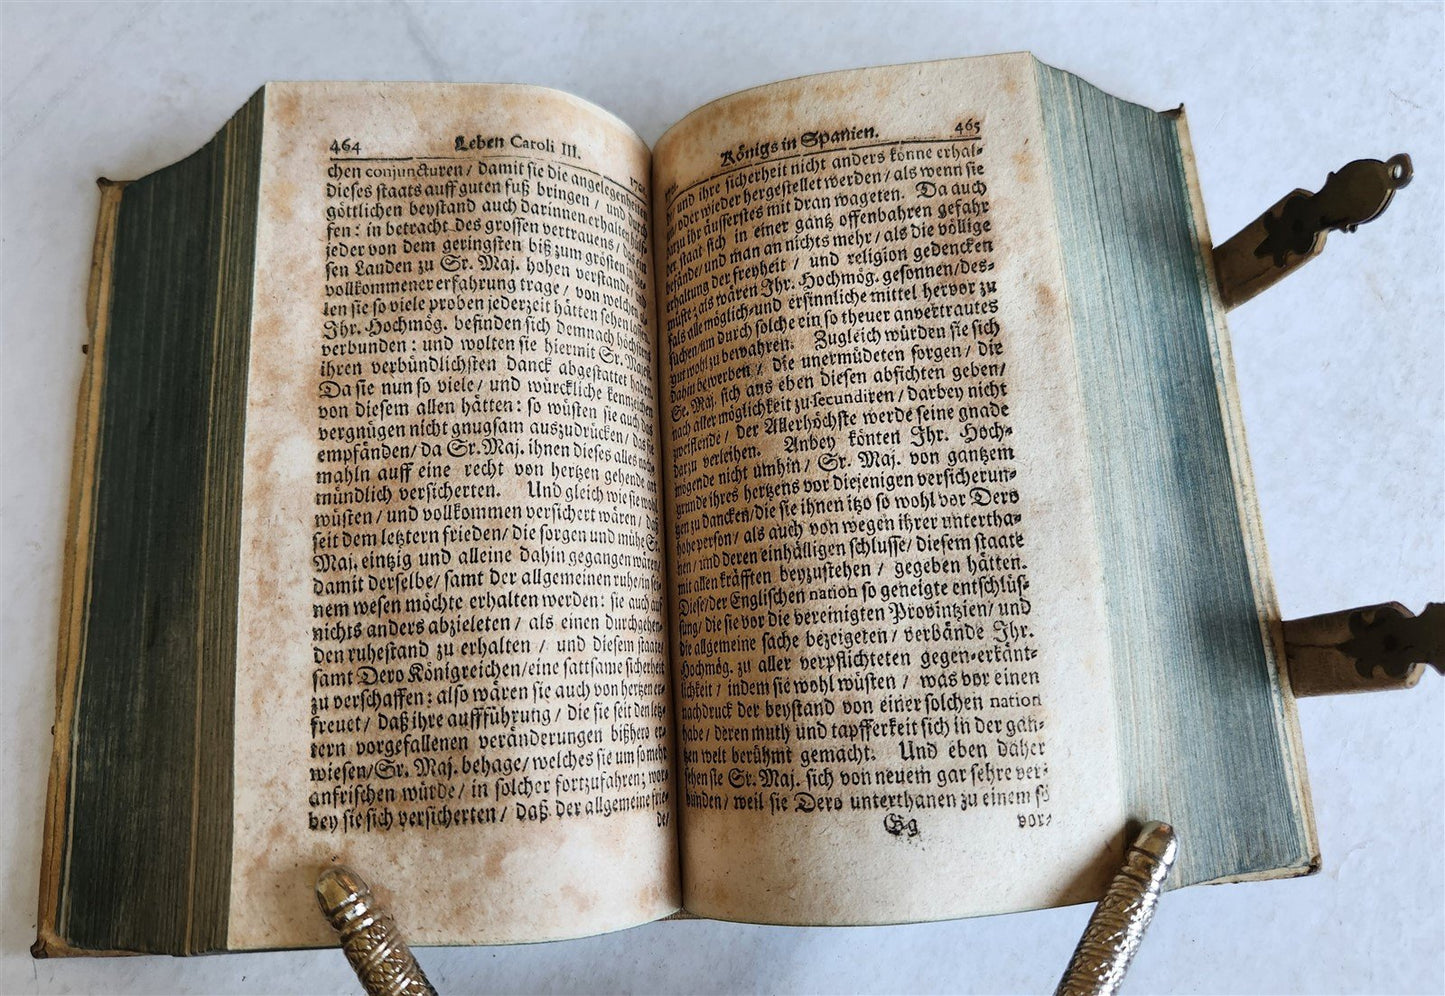 464 Leben Caroli III.
chen conjuncturen / damit sie die angelegenheiten
dieses staats auff guten fuß bringen / und durch
göttlichen beystand auch darinnen erhalten
fen: in betracht des grossen vertrauens /
jeder von dem geringsten biß zum größten
sen Landen zu Sr. Maj. hohen verstande
vollkommener erfahrung trage / von welchen
len sie so viele proben jederzeit hätten sehen lassen
Ihr. Hochmög. befinden sich demnach höchstens
verbunden: und wolten sie hiermit Sr. Majest.
ihren verbündlichsten danck abgestattet haben
Da sie nun so viele / und würckliche kennzeichen
von diesem allen hätten: so wüsten sie auch das
vergnügen nicht gnugsam auszudrücken / das sie
empfänden / da Sr. Maj. ihnen dieses alles noch-
mahln auff eine recht von hertzen gehende art
mündlich versicherten. Und gleich wie sie wohl
wüsten / und vollkommen versichert wären / daß
seit dem letztern frieden / die sorgen und mühe Sr.
Maj. eintzig und alleine dahin gegangen wären /
damit derselbe / samt der allgemeinen ruhe / in sei-
nem wesen möchte erhalten werden: sie auch auf
nichts anders abzieleten / als einen durchgehen-
den ruhestand zu erhalten / und diesem staate /
samt Dero Königreichen / eine sattsame sicherheit
zu verschaffen: also wären sie auch von hertzen er-
freuet / daß ihre auffführung / die sie seit den letz-
tern vorgefallenen veränderungen bißhero er-
wiesen / Sr. Maj. behage / welches sie um so mehr
anfrischen würde / in solcher fortzufahren; wor-
bey sie sich versicherten / daß der allgemeine frie-
de /
Königs in Spanien. 465
und ihre sicherheit nicht anders könne erhal-
ten / oder wieder hergestellet werden / als wenn sie
ihr äusserstes mit dran wageten. Da auch
der staat sich in einer gantz offenbahren gefahr
befände / und man an nichts mehr / als die völlige
erhaltung der freyheit / und religion gedencken
müste: als wären Ihr. Hochmög. gesonnen / des-
fals alle möglich- und ersinnliche mittel hervor zu
suchen / um durch solche ein so theuer anvertrautes
gut wohl zu bewahren. Zugleich würden sie sich
dahin bewerben / die unermüdeten sorgen / die
Sr. Maj. sich aus eben diesen absichten geben /
nach aller möglichkeit zu secundiren / darbey nicht
zweiflende / der Allerhöchste werde seine gnade
darzu verleihen. Anbey könten Ihr. Hoch-
mögende nicht umhin / Sr. Maj. von gantzem
grunde ihres hertzens vor diejenigen versicherun-
gen zu dancken / die sie ihnen itzo so wohl vor Dero
hohe person / als auch von wegen ihrer untertha-
nen / und deren einhälligen schlusse / diesem staate
mit allen kräfften beyzustehen / gegeben hätten.
Diese / der Englischen nation so geneigte entschlüs-
sung / die sie vor die vereinigten Provintzien / und
die allgemeine sache bezeigeten / verbände Ihr.
Hochmög. zu aller verpflichteten gegen-erkänt-
lichkeit / indem sie wohl wüsten / was vor einen
nachdruck der beystand von einer solchen nation
habe / deren muth und tapfferkeit sich in der gan-
tzen welt berühmt gemacht. Und eben daher
sehen sie Sr. Maj. sich von neuem gar sehre ver-
bunden / weil sie Dero unterthanen zu einem so
Gg vor-